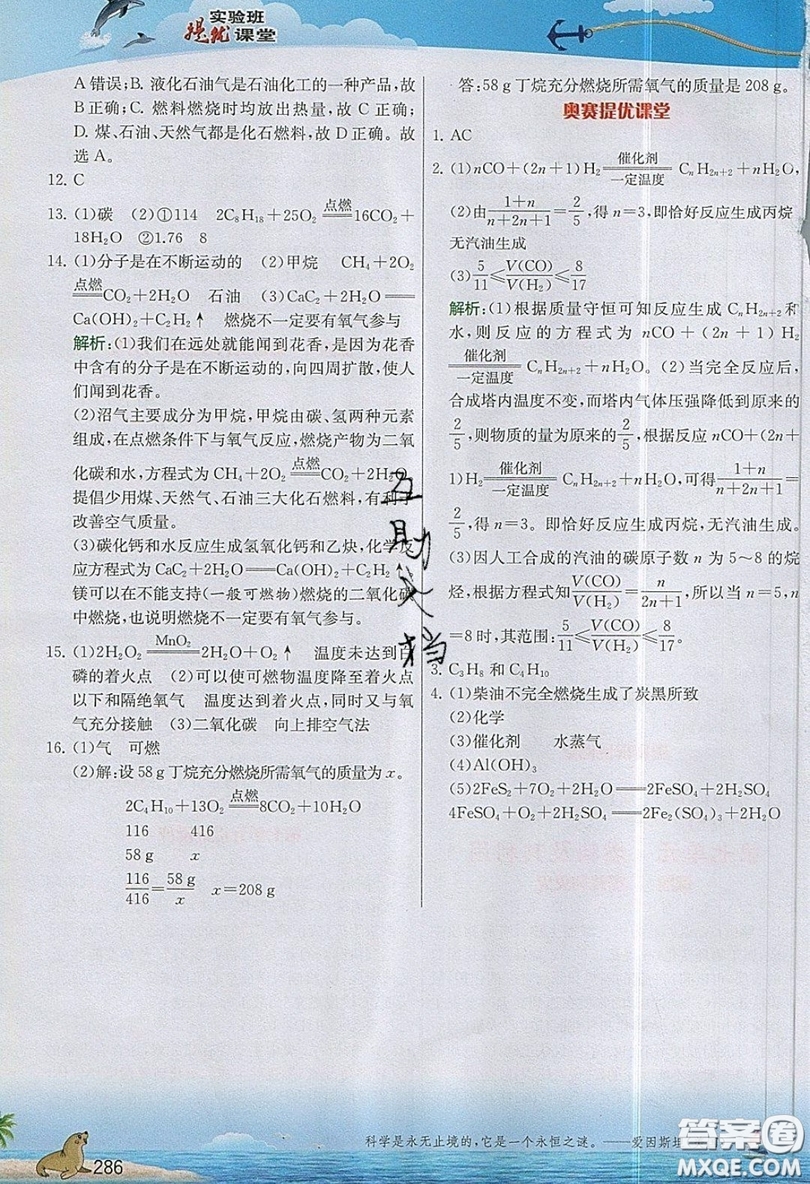 实验班
提优课堂
A错误;B. 液化石油气是石油化工的一种产品,故
B正确;C. 燃料燃烧时均放出热量,故 C 正确;
D. 煤、石油、天然气都是化石燃料,故 D 正确。故
选 A。
12. C
13. (1)碳 (2)①114 2C₈H₁₈+25O₂ =点燃= 16CO₂+
18H₂O ②1.76 8
14. (1)分子是在不断运动的 (2)甲烷 CH₄+2O₂
=点燃= CO₂+2H₂O 石油 (3)CaC₂+2H₂O ══
Ca(OH)₂+C₂H₂↑ 燃烧不一定要有氧气参与
解析:(1)我们在远处就能闻到花香,是因为花香
中含有的分子是在不断运动的,向四周扩散,使人
们闻到花香。
(2)沼气主要成分为甲烷,甲烷由碳、氢两种元素
组成,在点燃条件下与氧气反应,燃烧产物为二氧
化碳和水,方程式为 CH₄+2O₂ =点燃= CO₂+2H₂O
提倡少用煤、天然气、石油三大化石燃料,有利于
改善空气质量。
(3)碳化钙和水反应生成氢氧化钙和乙炔,化学反
应方程式为 CaC₂+2H₂O ══ Ca(OH)₂+C₂H₂↑
镁可以在不能支持(一般可燃物)燃烧的二氧化碳
中燃烧,也说明燃烧不一定要有氧气参与。
15. (1)2H₂O₂ =MnO₂= 2H₂O+O₂↑ 温度未达到白
磷的着火点 (2)可以使可燃物温度降至着火点
以下和隔绝氧气 温度达到着火点,同时又与氧
气充分接触 (3)二氧化碳 向上排空气法
16. (1)气 可燃
(2)解:设58 g丁烷充分燃烧所需氧气的质量为 x。
2C₄H₁₀+13O₂ =点燃= 8CO₂+10H₂O
116 416
58 g x
116/416=58 g/x x=208 g
答:58 g丁烷充分燃烧所需氧气的质量是 208 g。
奥赛提优课堂
1. AC
2. (1)nCO+(2n+1)H₂ =催化剂/一定温度= CₙH₂ₙ₊₂+nH₂O,
(2)由(1+n)/(n+2n+1)=2/5,得 n=3,即恰好反应生成丙烷,
无汽油生成
(3)5/11≤V(CO)/V(H₂)≤8/17
解析:(1)根据质量守恒可知反应生成 CₙH₂ₙ₊₂和
水,则反应的方程式为 nCO+(2n+1)H₂
=催化剂/一定温度= CₙH₂ₙ₊₂+nH₂O。(2)当完全反应后,
合成塔内温度不变,而塔内气体压强降低到原来的
2/5,则物质的量为原来的2/5,根据反应 nCO+(2n+
1)H₂ =催化剂/一定温度= CₙH₂ₙ₊₂+nH₂O,可得(1+n)/(n+2n+1)=
2/5,得 n=3。即恰好反应生成丙烷,无汽油生成。
(3)因人工合成的汽油的碳原子数 n 为 5～8 的烷
烃,根据方程式知V(CO)/V(H₂)=n/(2n+1),所以当 n=5,n
=8时,其范围:5/11≤V(CO)/V(H₂)≤8/17。
3. C₃H₈ 和 C₄H₁₀
4. (1)柴油不完全燃烧生成了炭黑所致
(2)化学
(3)催化剂 水蒸气
(4)Al(OH)₃
(5)2FeS₂+7O₂+2H₂O ══ 2FeSO₄+2H₂SO₄
4FeSO₄+O₂+2H₂SO₄ ══ 2Fe₂(SO₄)₃+2H₂O
互
助
文
档
科学是永无止境的,它是一个永恒之谜。——爱因斯坦
286
答案圈
MXQE.COM